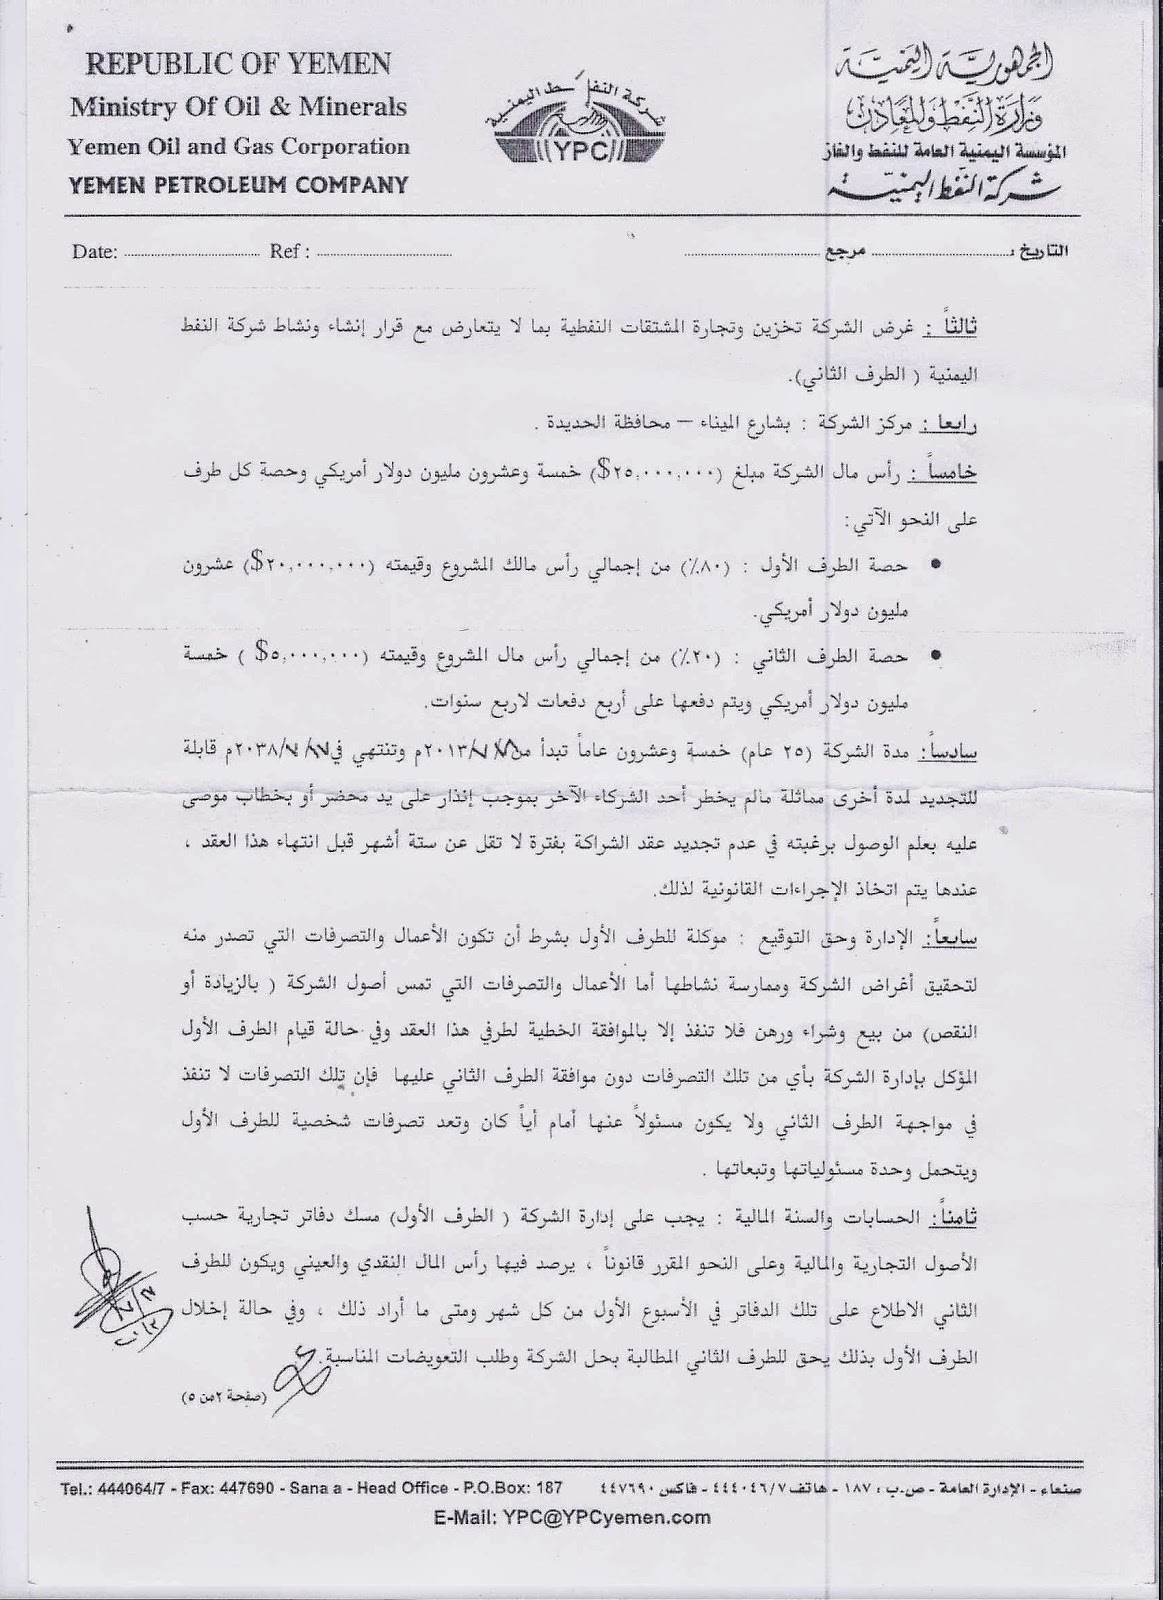 REPUBLIC OF YEMEN
Ministry Of Oil & Minerals
Yemen Oil and Gas Corporation
YEMEN PETROLEUM COMPANY
شركة النفط اليمنية
YPC
الجمهورية اليمنية
وزارة النفط والمعادن
المؤسسة اليمنية العامة للنفط والغاز
شركة النفط اليمنية
Date: ........................ Ref : ........................
التاريخ :........................ مرجع ........................
ثالثاً : غرض الشركة تخزين وتجارة المشتقات النفطية بما لا يتعارض مع قرار إنشاء ونشاط شركة النفط
اليمنية ( الطرف الثاني).
رابعا : مركز الشركة : بشارع الميناء – محافظة الحديدة .
خامساً : رأس مال الشركة مبلغ (٢٥,٠٠٠,٠٠٠$) خمسة وعشرون مليون دولار أمريكي وحصة كل طرف
على النحو الآتي:
• حصة الطرف الأول : (٨٠٪) من إجمالي رأس مالك المشروع وقيمته (٢٠,٠٠٠,٠٠٠$) عشرون
مليون دولار أمريكي.
• حصة الطرف الثاني : (٢٠٪) من إجمالي رأس مال المشروع وقيمته (٥,٠٠٠,٠٠٠$ ) خمسة
مليون دولار أمريكي ويتم دفعها على أربع دفعات لاربع سنوات.
سادساً: مدة الشركة (٢٥ عام) خمسة وعشرون عاماً تبدأ من / /٢٠١٣م وتنتهي في / /٢٠٣٨م قابلة
للتجديد لمدة أخرى مماثلة مالم يخطر أحد الشركاء الآخر بموجب إنذار على يد محضر أو بخطاب موصى
عليه بعلم الوصول برغبته في عدم تجديد عقد الشراكة بفترة لا تقل عن ستة أشهر قبل انتهاء هذا العقد ،
عندها يتم اتخاذ الإجراءات القانونية لذلك.
سابعاً: الإدارة وحق التوقيع : موكلة للطرف الأول بشرط أن تكون الأعمال والتصرفات التي تصدر منه
لتحقيق أغراض الشركة وممارسة نشاطها أما الأعمال والتصرفات التي تمس أصول الشركة ( بالزيادة أو
النقص) من بيع وشراء ورهن فلا تنفذ إلا بالموافقة الخطية لطرفي هذا العقد وفي حالة قيام الطرف الأول
المؤكل بإدارة الشركة بأي من تلك التصرفات دون موافقة الطرف الثاني عليها فإن تلك التصرفات لا تنفذ
في مواجهة الطرف الثاني ولا يكون مسئولاً عنها أمام أياً كان وتعد تصرفات شخصية للطرف الأول
ويتحمل وحدة مسئولياتها وتبعاتها .
ثامناً: الحسابات والسنة المالية : يجب على إدارة الشركة ( الطرف الأول) مسك دفاتر تجارية حسب
الأصول التجارية والمالية وعلى النحو المقرر قانوناً ، يرصد فيها رأس المال النقدي والعيني ويكون للطرف
الثاني الاطلاع على تلك الدفاتر في الأسبوع الأول من كل شهر ومتى ما أراد ذلك ، وفي حالة إخلال
الطرف الأول بذلك يحق للطرف الثاني المطالبة بحل الشركة وطلب التعويضات المناسبة.
(صفحة ٢من ٥)
Tel.: 444064/7 - Fax: 447690 - Sana a - Head Office - P.O.Box: 187
صنعاء - الإدارة العامة - ص.ب : ١٨٧ - هاتف ٤٤٤٠٤٦/٧ - فاكس ٤٤٧٦٩٠
E-Mail: YPC@YPCyemen.com